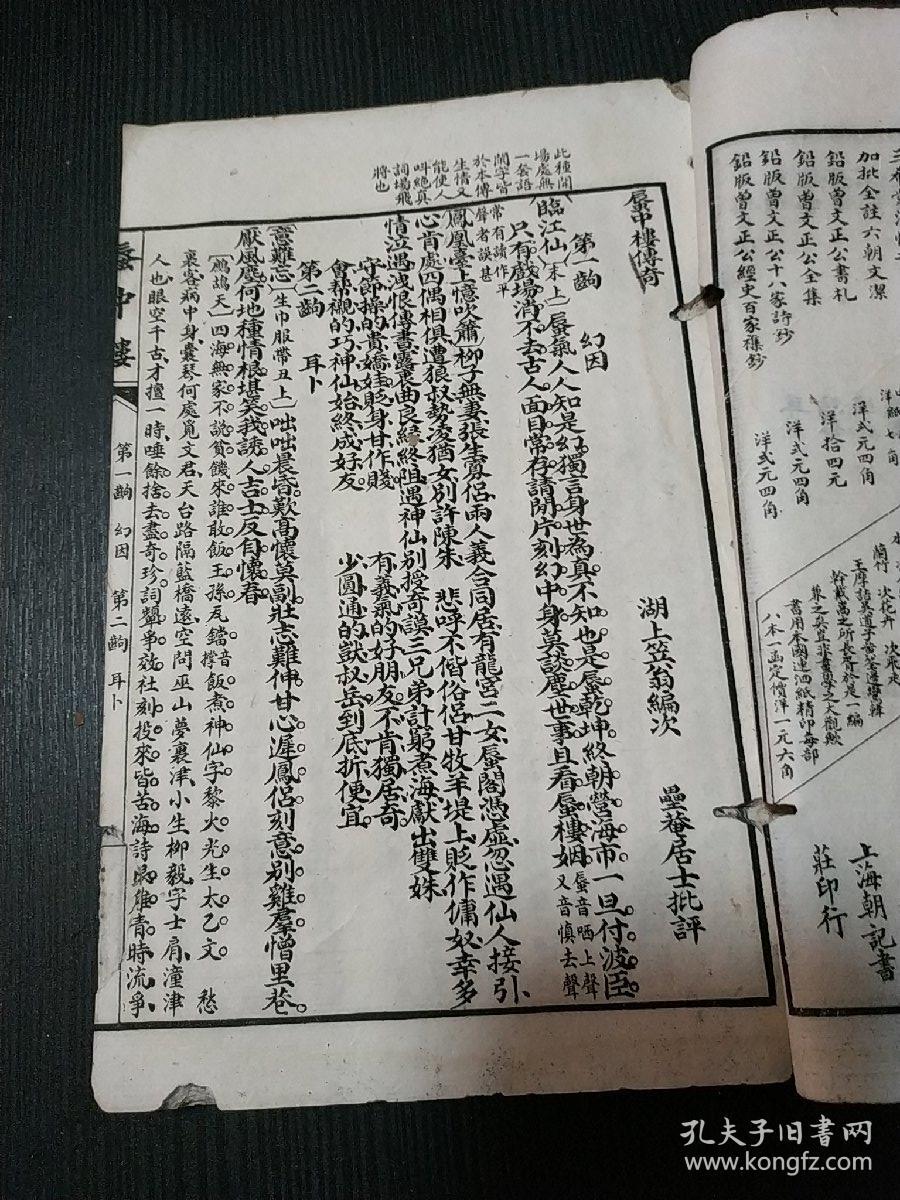 三希堂法帖
加批全註六朝文潔
鉛版曾文正公書札
鉛版曾文正公全集
鉛版曾文正公十八家詩鈔
鉛版曾文正公經史百家襍鈔
洋式元四角
洋拾四元
洋式元四角
洋式元四角
書用本國連泗紙精印每部
八本一函定價洋一元六角
上海朝記書
莊印行
此種開
場處無
一套語
閒字皆
於本傳
生情又
能使人
叫絕真
詞場飛
將也
蜃中樓傳奇
湖上笠翁編次 壘菴居士批評
第一齣 幻因
臨江仙(末上)蜃氣人人知是幻獨言身世為真不知也是蜃乾坤終朝營海市一旦付波臣
只有戲場消不去古人面目常存請開片刻幻中身莫談塵世事且看蜃樓姻蜃音哂上聲又音慎去聲
常有讀作平聲者誤甚
鳳凰臺上憶吹簫柳子無妻張生寡侶兩人義合同居有龍宮二女蜃閣憑虛忽遇仙人接引
心肯處四偶相俱遭狼叔勢凌猶女別許陳朱 悲呼不偕俗侶甘牧羊堤上貶作傭奴幸多
情泣遇洩恨傳書霹靂曲良緣終阻遇神仙別授奇謨三兄弟計窮煮海獻出雙姝
守節操的貴嬌娃貶身甘作賤 有義氣的好朋友不肯獨居奇
會幫襯的巧神仙始終成好友 少圓通的獃叔岳到底折便宜
第二齣 耳卜
意難忘(生巾服帶丑上)咄咄晨昏歎高懷莫副壯志難伸甘心遲鳳侶刻意別雞羣憎里巷
厭風塵何地種情根堪笑我誘人吉士反自懷春
鷓鴣天四海無家不說貧饑來誰敢飯王孫瓦鐺音撐飯煮神仙字黎火光生太乙文 愁
裏客病中身囊琴何處覓文君天台路隔藍橋遠空問巫山夢裏津小生柳毅字士肩潼津
人也眼空千古才擅一時唾餘捨去盡奇珍詞顰爭效社刻投來皆苦海詩
蜃中樓
第一齣 幻因 第二齣 耳卜
孔夫子旧书网
www.kongfz.com